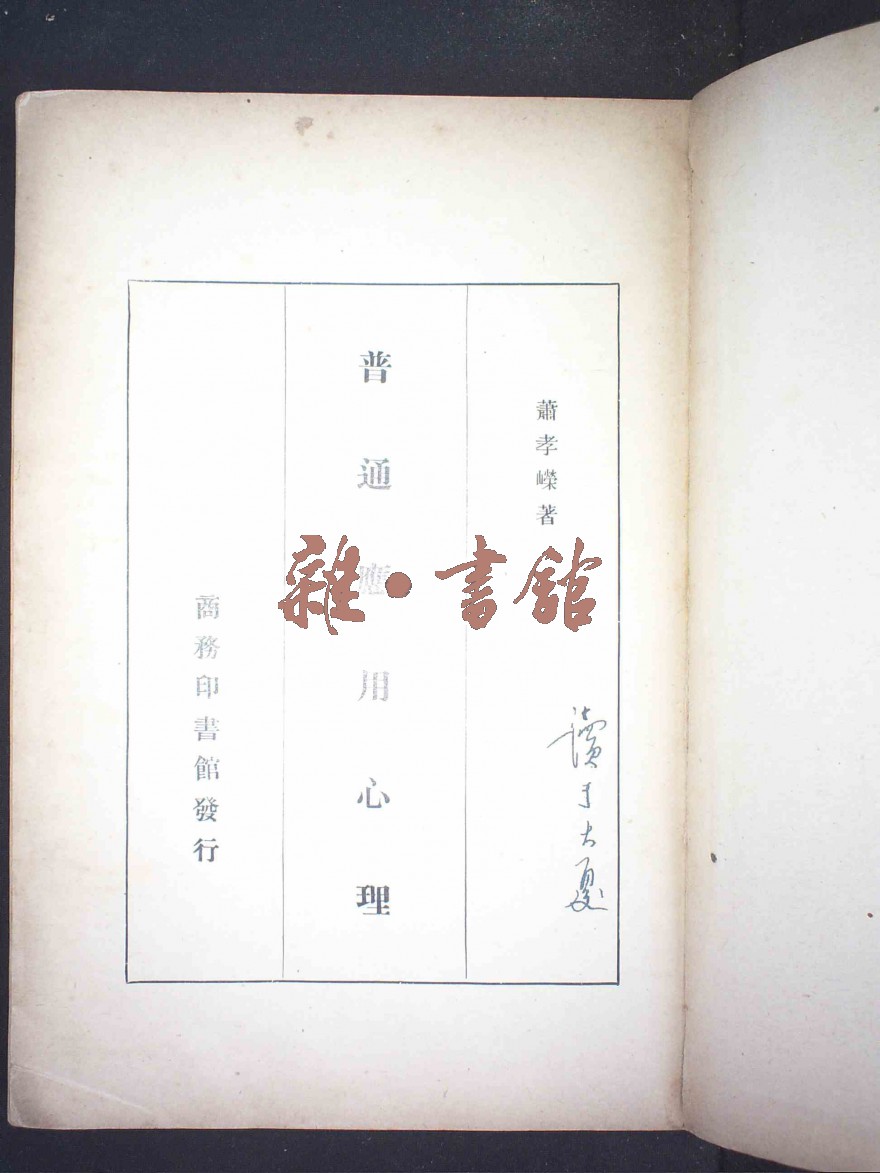 蕭孝嶸著
普通應用心理
商務印書館發行
讀于大夏
雜·書館